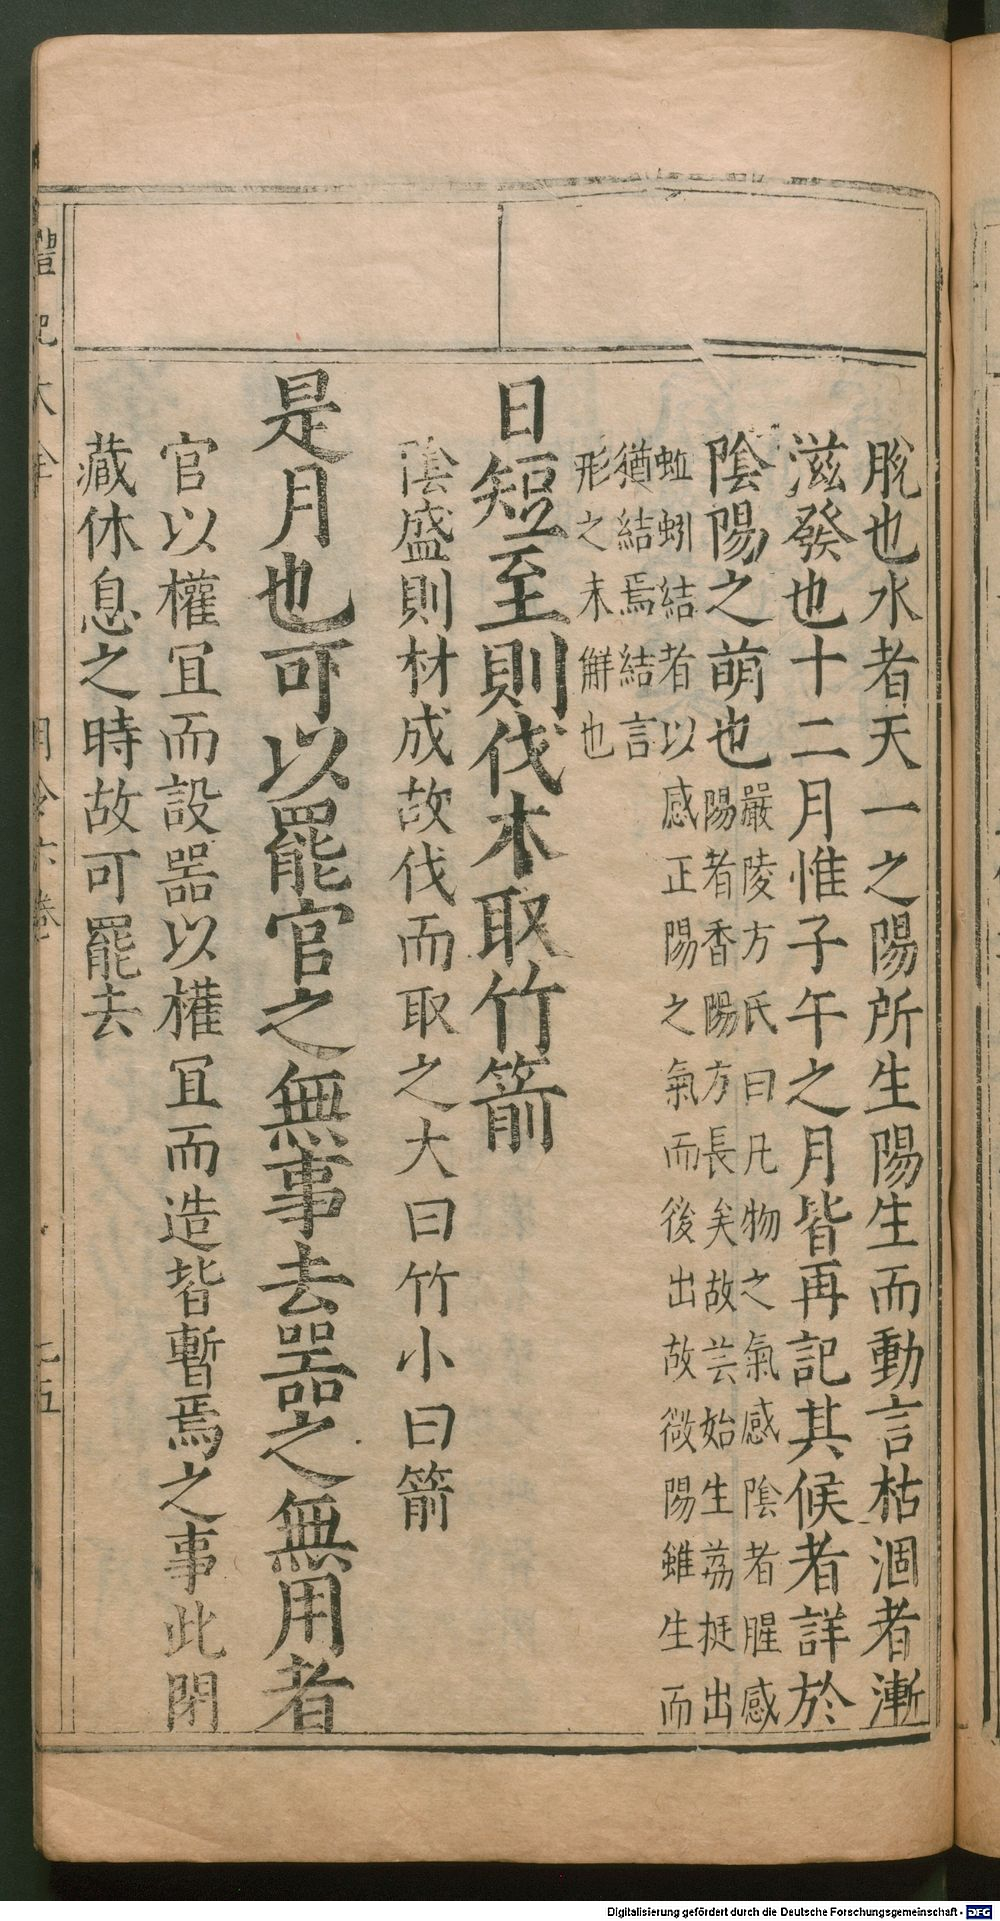 脫也水者天一之陽所生陽生而動言枯涸者漸
滋發也十二月惟子午之月皆再記其候者詳於
陰陽之萌也
嚴陵方氏曰凡物之氣感陰者腥感
陽者香陽方長矣故芸始生荔挺出
蚯蚓結者以感正陽之氣而後出故微陽雖生而
猶結焉結言
形之未解也
日短至則伐木取竹箭
陰盛則材成故伐而取之大曰竹小曰箭
是月也可以罷官之無事去器之無用者
官以權冝而設器以權冝而造皆暫焉之事此閉
藏休息之時故可罷去
禮記大全
月令六卷
五
Digitalisierung gefördert durch die Deutsche Forschungsgemeinschaft - DFG